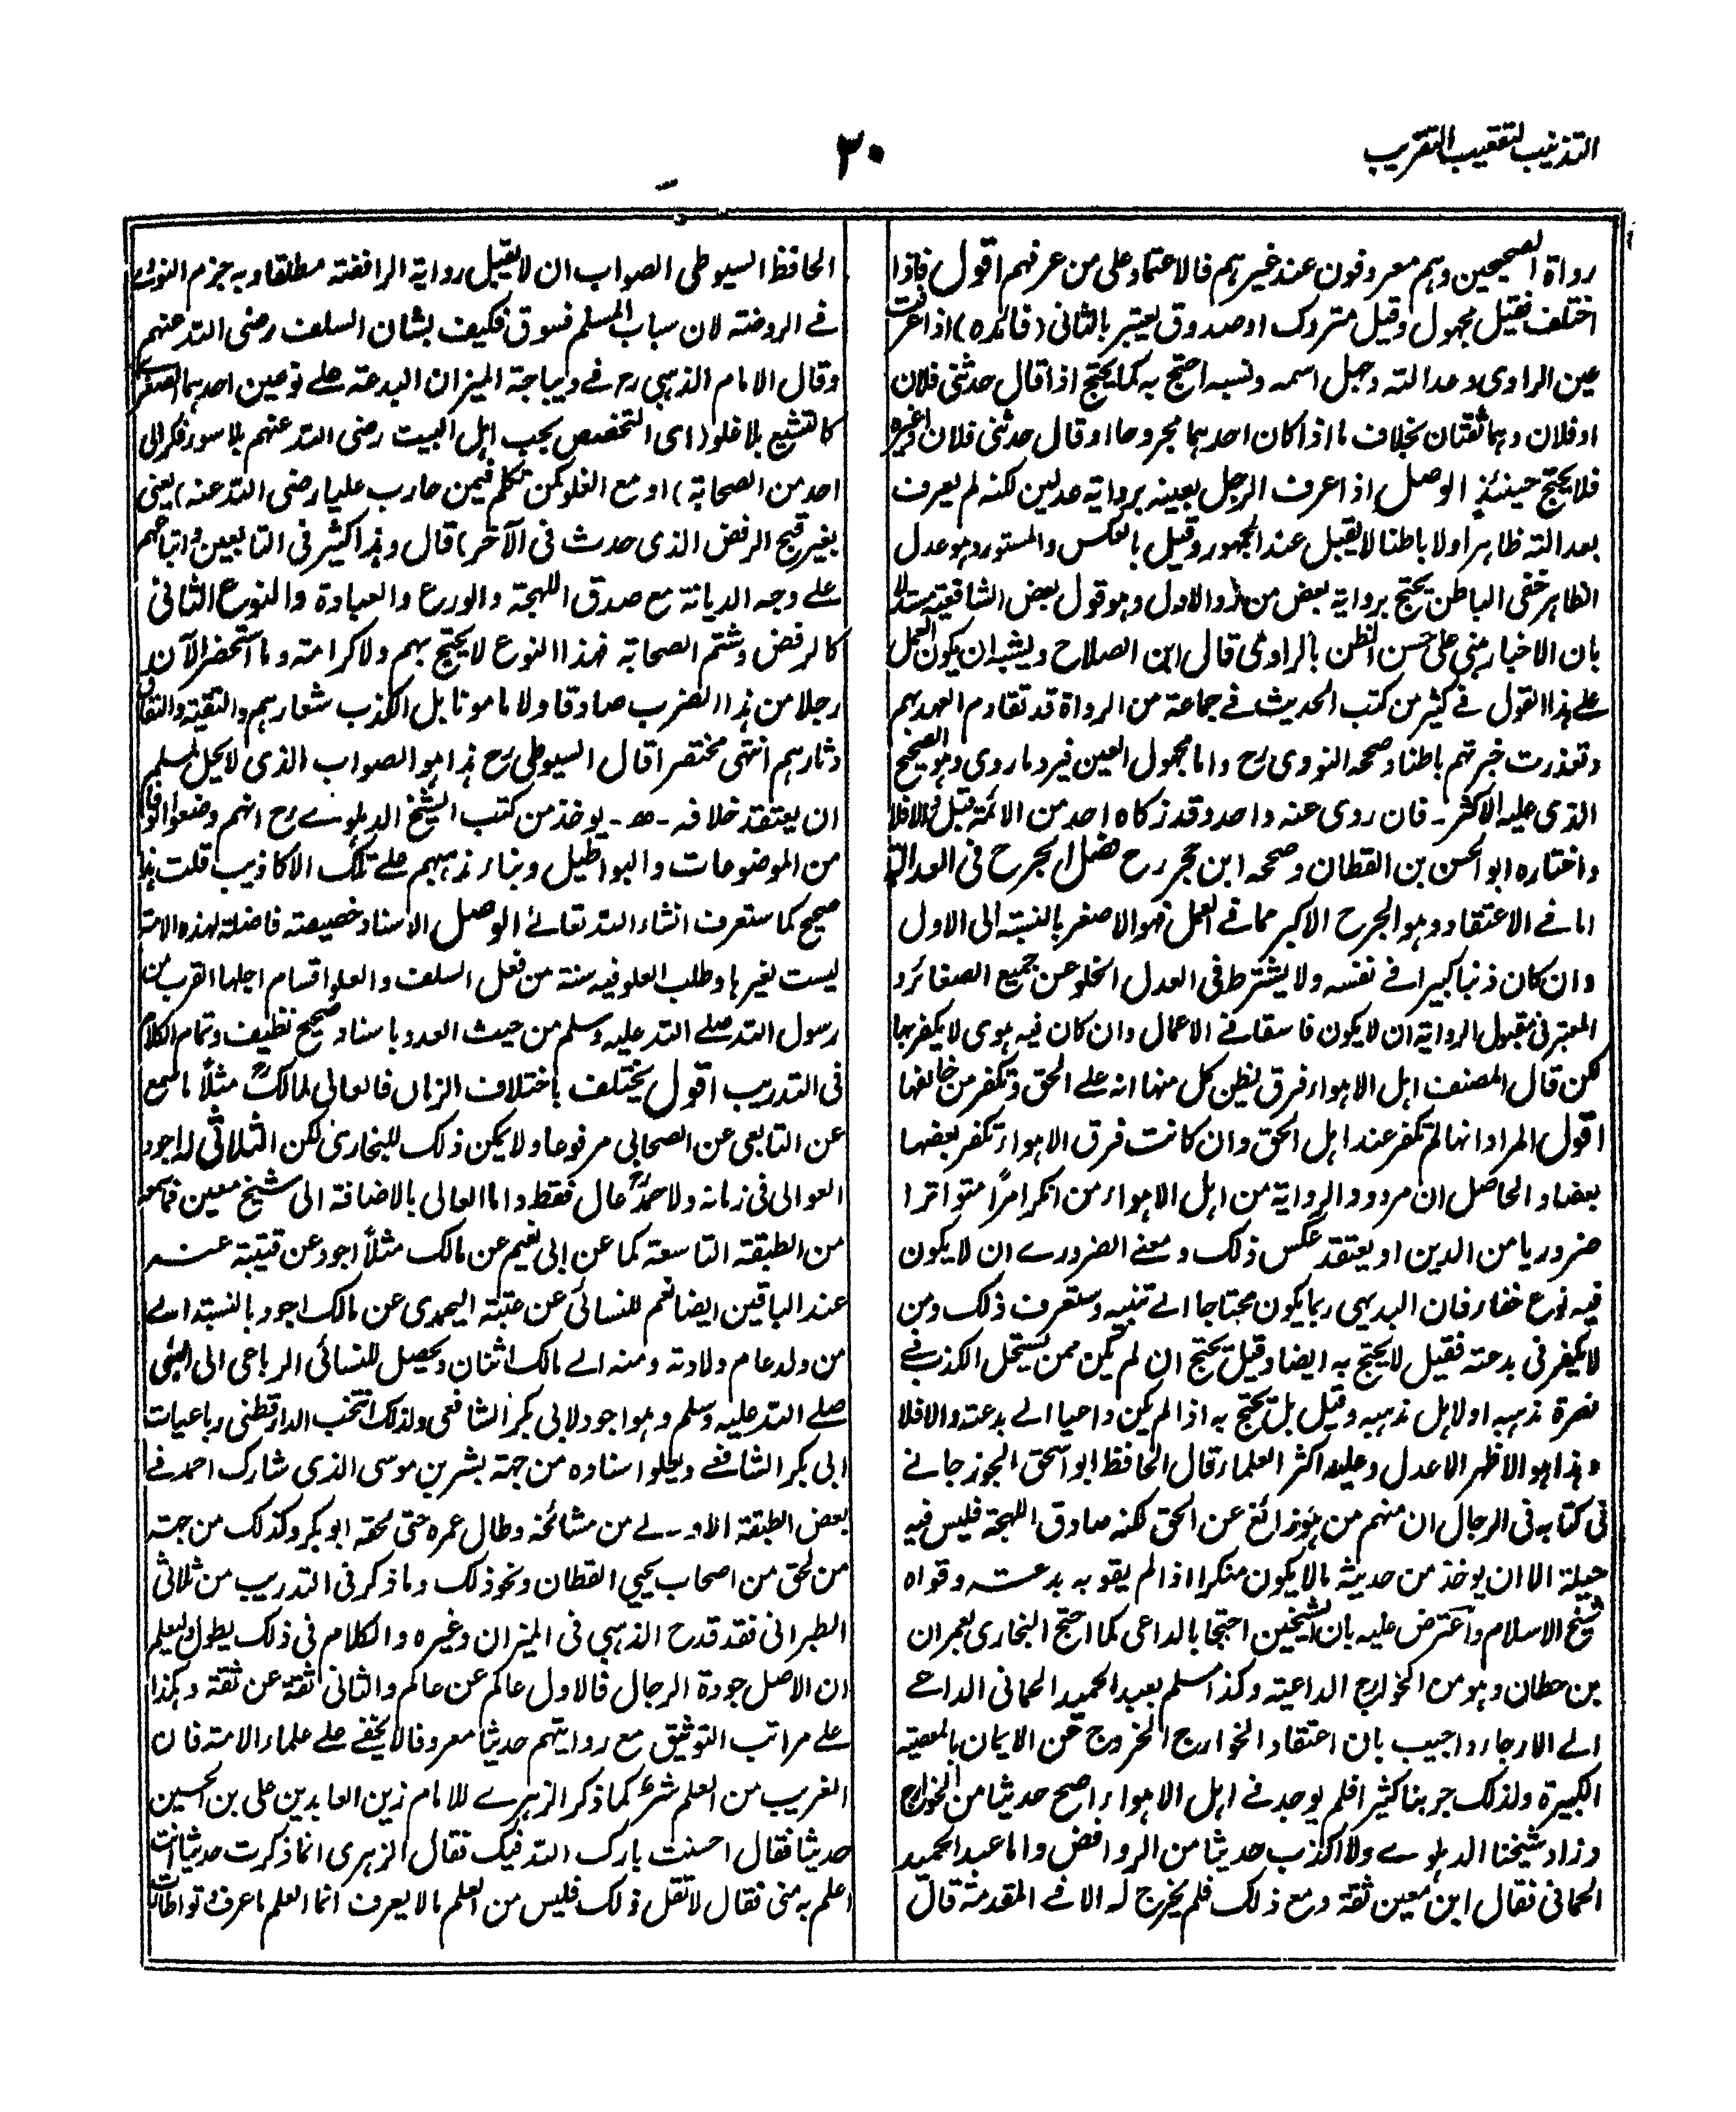 التذنيب لتعقيب التقريب
٣٠
رواة الصحيحين وہم معروفون عند غيرہم فالاعتماد على من عرفہم اقول فاذا
اختلف فقيل مجہول وقيل متروك او صدوق يعتبر بالثانى (فائدہ) اذا عرفت
عين الراوى وعدالتہ وجہل اسمہ ونسبہ احتج بہ كما يحتج اذا قال حدثنى فلان
او فلان وہما ثقتان بخلاف ما اذا كان احدہما مجروحا او قال حدثنى فلان او غيرہ
فلا يحتج حينئذ الوصل اذا عرف الرجل بعينہ برواية عدلين لكنہ لم يعرف
بعدالتہ ظاہرا ولا باطنا لا يقبل عند الجمہور وقيل بالعكس والمستور وہو عدل
الظاہر خفى الباطن يحتج برواية بعض من رد الاول وہو قول بعض الشافعية مستدلا
بان الاخبار مبنى على حسن الظن بالراوى قال ابن الصلاح ويشبہ ان يكون العمل
على ہذا القول فے كثير من كتب الحديث فے جماعة من الرواة قد تقادم العہد بہم
وتعذرت خبرتہم باطنا وصححہ النووى رح واما مجہول العين فيرد ما روى وہو الصحيح
الذى عليہ الاكثر۔ فان روى عنہ واحد وقد زكاہ احد من الائمة قبل والا فلا
واختارہ ابو الحسن بن القطان وصححہ ابن حجر رح فصل الجرح فى العدالة
اما فے الاعتقاد وہو الجرح الاكبر مما فے العمل فہو الاصغر بالنسبة الى الاول
وان كان ذنبا كبيرا فے نفسہ ولا يشترط فى العدل الخلو عن جميع الصغائر و
المعتبر فى مقبول الرواية ان لا يكون فاسقا فے الاعمال وان كان فيہ ہوى لا يكفر بہا
لكن قال المصنف اہل الاہواء فرق يظن كل منہا انہ على الحق وتكفر من خالفہا
اقول المراد انہا لم تكفر عند اہل الحق وان كانت فرق الاہواء تكفر بعضہا
بعضا والحاصل ان مردود الرواية من اہل الاہواء من انكر امرًا متواترا
ضروريا من الدين او يعتقد عكس ذلك ومعنے الضرورے ان لا يكون
فيہ نوع خفاء فان البديہى ربما يكون محتاجا الے تنبيہ وستعرف ذلك ومن
لا يكفر فى بدعتہ فقيل لا يحتج بہ ايضا وقيل يحتج ان لم يكن ممن يستحل الكذب فے
نصرة مذہبہ او لاہل مذہبہ وقيل بل يحتج بہ اذا لم يكن داعيا الے بدعتہ والا فلا
وہذا ہو الاظہر الاعدل وعليہ اكثر العلماء وقال الحافظ ابو اسحق الجوزجانے
فى كتابہ فى الرجال ان منہم من ہو زائغ عن الحق لكنہ صادق اللہجة فليس فيہ
حيلة الا ان يوخذ من حديثہ مالا يكون منكرا اذا لم يقو بہ بدعتہ وقواہ
شيخ الاسلام واعترض عليہ بان الشيخين احتجا بالداعى كما احتج البخارى بعمران
بن حطان وہو من الخوارج الداعية وكذا مسلم بعبد الحميد الحمانى الداعے
الے الارجاء واجيب بان اعتقاد الخوارج الخروج عن الايمان بالمعصية
الكبيرة ولذلك جربنا كثيرا فلم يوجد فے اہل الاہواء اصح حديثا من الخوارج
وزاد شيخنا الدہلوے ولا اكذب حديثا من الروافض واما عبد الحميد
الحمانى فقال ابن معين ثقة ومع ذلك فلم يخرج لہ الا فے المقدمة قال
الحافظ السيوطى الصواب ان لا يقبل رواية الرافضة مطلقا وبہ جزم النووے
فے الروضة لان سباب المسلم فسوق فكيف بشان السلف رضى اللہ عنہم
وقال الامام الذہبى رح فے ديباجة الميزان البدعة على نوعين احدہما الصغرے
كالتشيع بلا غلو (اى التخصيص بحب اہل البيت رضى اللہ عنہم بلا سوء ذكر الى
احد من الصحابة) او مع الغلو كمن تكلم فيمن حارب عليا رضى اللہ عنہ (يعنى
بغير قبح الرفض الذى حدث فى الآخر) قال وہذا كثير فى التابعين واتباعہم
على وجہ الديانة مع صدق اللہجة والورع والعبادة والنوع الثانى
كالرفض وشتم الصحابة فہذا النوع لا يحتج بہم ولا كرامة وما استحضر الآن
رجلا من ہذا الضرب صادقا ولا مامونا بل الكذب شعارہم والتقية والنفاق
دثارہم انتہى مختصرا قال السيوطى رح ہذا ہو الصواب الذى لا يحل لمسلم
ان يعتقد خلافہ۔ يوخذ من كتب الشيخ الدہلوے رح انہم وضعوا الوفا
من الموضوعات والبواطيل وبناء مذہبہم على تلك الاكاذيب قلت ہذا
صحيح كما ستعرف انشاء اللہ تعالے الوصل الاسناد خصيصة فاضلة لہذہ الامة
ليست لغيرہا وطلب العلو فيہ سنة من فعل السلف والعلو اقسام اجلہا القرب من
رسول اللہ صلے اللہ عليہ وسلم من حيث العدد باسناد صحيح نظيف وتمام الكلام
فى التدريب اقول يختلف باختلاف الزمان فالعالى لمالك رح مثلًا ما سمع
عن التابعى عن الصحابى مرفوعا ولا يمكن ذلك للبخارى لكن الثلاثى لہ اجود
العوالى فى زمانہ ولاحمد عال فقط واما العالى بالاضافة الى شيخ معين فما سمع
من الطبقة التاسعة كما عن ابى نعيم عن مالك مثلًا اجود عن قتيبة عنہ
عند الباقين ايضا نعم للنسائى عن عتبة اليحمدى عن مالك اجود بالنسبة الے
من ولد عام ولادتہ ومنہ الے مالك اثنان ويحصل للنسائى الرباعى الى النبى
صلے اللہ عليہ وسلم وہو اجود لابى بكر الشافعى ولذلك انتخب الدارقطنى رباعيات
ابى بكر الشافعے ويعلو اسنادہ من جہة بشر بن موسى الذى شارك احمد فے
بعض الطبقة الاولے من مشائخہ وطال عمرہ حتى لحقہ ابو بكر وكذلك من جہة
من لحق من اصحاب يحيى القطان ونحو ذلك وما ذكر فى التدريب من ثلاثى
الطبرانى فقد قدح الذہبى فى الميزان وغيرہ والكلام فى ذلك يطول وليعلم
ان الاصل جودة الرجال فالاول عالم عن عالم والثانى ثقة عن ثقة وہكذا
على مراتب التوثيق مع روايتہم حديثا معروفا لا يخفے على علماء الامة فان
الغريب من العلم شر كما ذكر الزہرے للامام زين العابدين على بن الحسين
حديثا فقال احسنت بارك اللہ فيك فقال الزہرى انما ذكرت حديثا انت
اعلم بہ منى فقال لا تقل ذلك فليس من العلم مالا يعرف انما العلم ما عرف وتواطأت